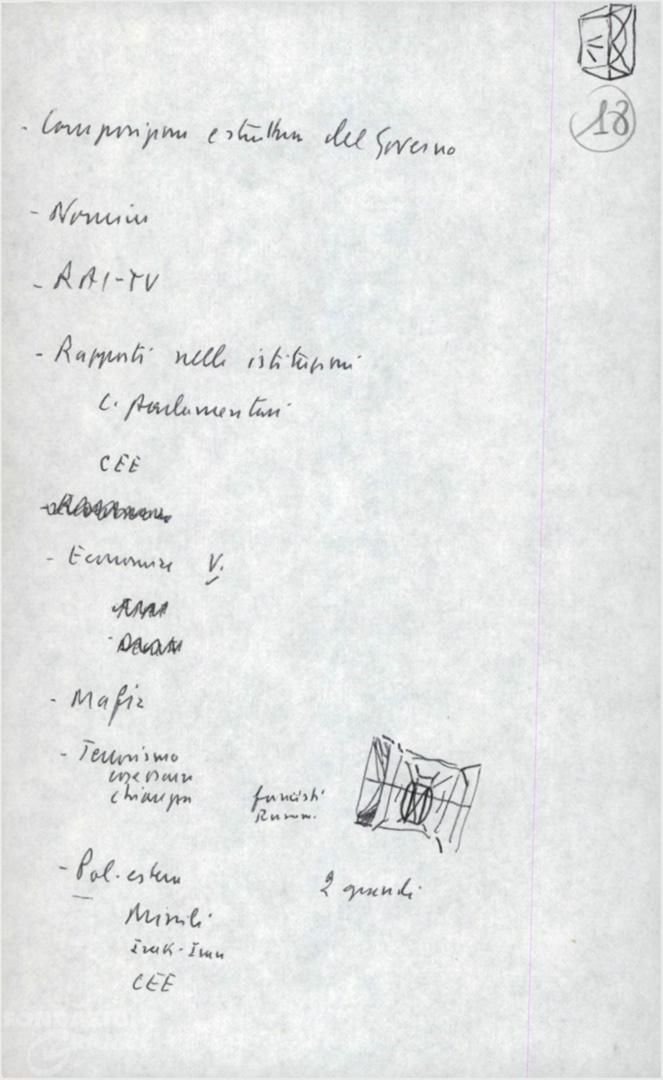 18
- Composizione e struttura del Governo
- Nomine
- RAI-TV
- Rapporti nelle istituzioni
C. Parlamentari
CEE
- Economia V.
- Mafia
- Terrorismo
chiarezza
fascisti
- Pol. estera
2 grandi
Missili
Irak-Iran
CEE